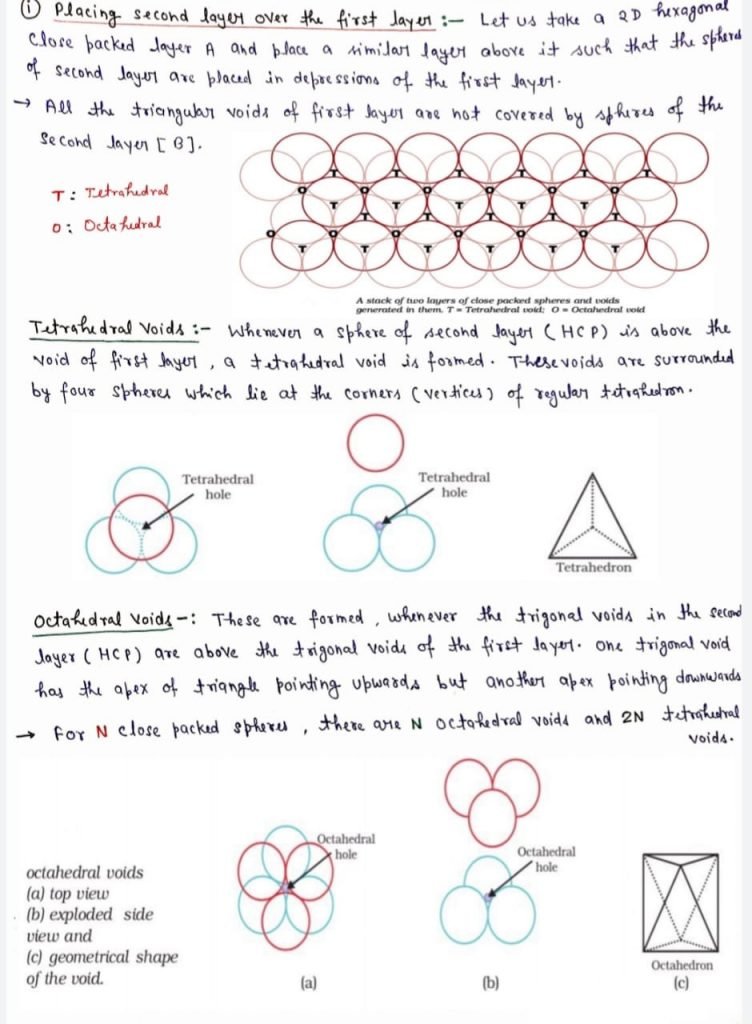 (i) Placing second layer over the first layer :- Let us take a 2D hexagonal
close packed layer A and place a similar layer above it such that the sphere
of second layer are placed in depressions of the first layer.
→ All the triangular voids of first layer are not covered by spheres of the
Second layer [B].
T : Tetrahedral
O : Octahedral
T T T T T T
O O O O O O
T T T T T T
T T T T T T
O O O O O O
T T T T T T
A stack of two layers of close packed spheres and voids
generated in them. T = Tetrahedral void; O = Octahedral void
Tetrahedral Voids :- Whenever a sphere of second layer (HCP) is above the
void of first layer, a tetrahedral void is formed. These voids are surrounded
by four spheres which lie at the corners (vertices) of regular tetrahedron.
Tetrahedral
hole
Tetrahedral
hole
Tetrahedron
Octahedral Voids -: These are formed, whenever the trigonal voids in the second
layer (HCP) are above the trigonal voids of the first layer. One trigonal void
has the apex of triangle pointing upwards but another apex pointing downwards
→ For N close packed spheres, there are N octahedral voids and 2N tetrahedral
voids.
octahedral voids
(a) top view
(b) exploded side
view and
(c) geometrical shape
of the void.
Octahedral
hole
(a)
Octahedral
hole
(b)
Octahedron
(c)